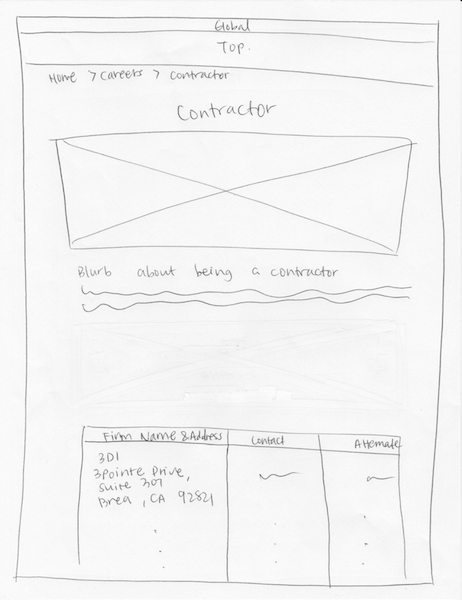 Global
Top.
Home > Careers > Contractor
Contractor
Blurb about being a contractor
Firm Name & Address
Contact
Alternate
3D1
3 Pointe Drive,
Suite 307
Brea, CA 92821